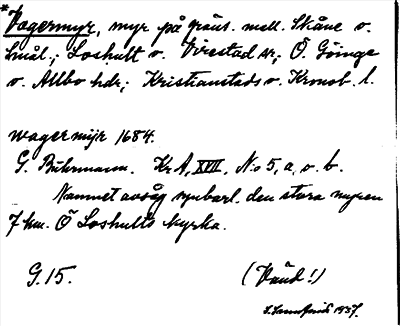 *Vagermyr, myr på gräns. mell. Skåne o.
Smål.; Loshult o. Virestad sr; Ö. Göinge
o. Allbo hdr; Kristianstads o. Kronob. l.
wager mijr 1684.
G. Buhrmann. Kr A, XVII, N:o 5, a, o. b.
Namnet avsåg synbarl. den stora myren
7 km. Ö Loshults kyrka.
G. 15. (Vänd!)
1937.